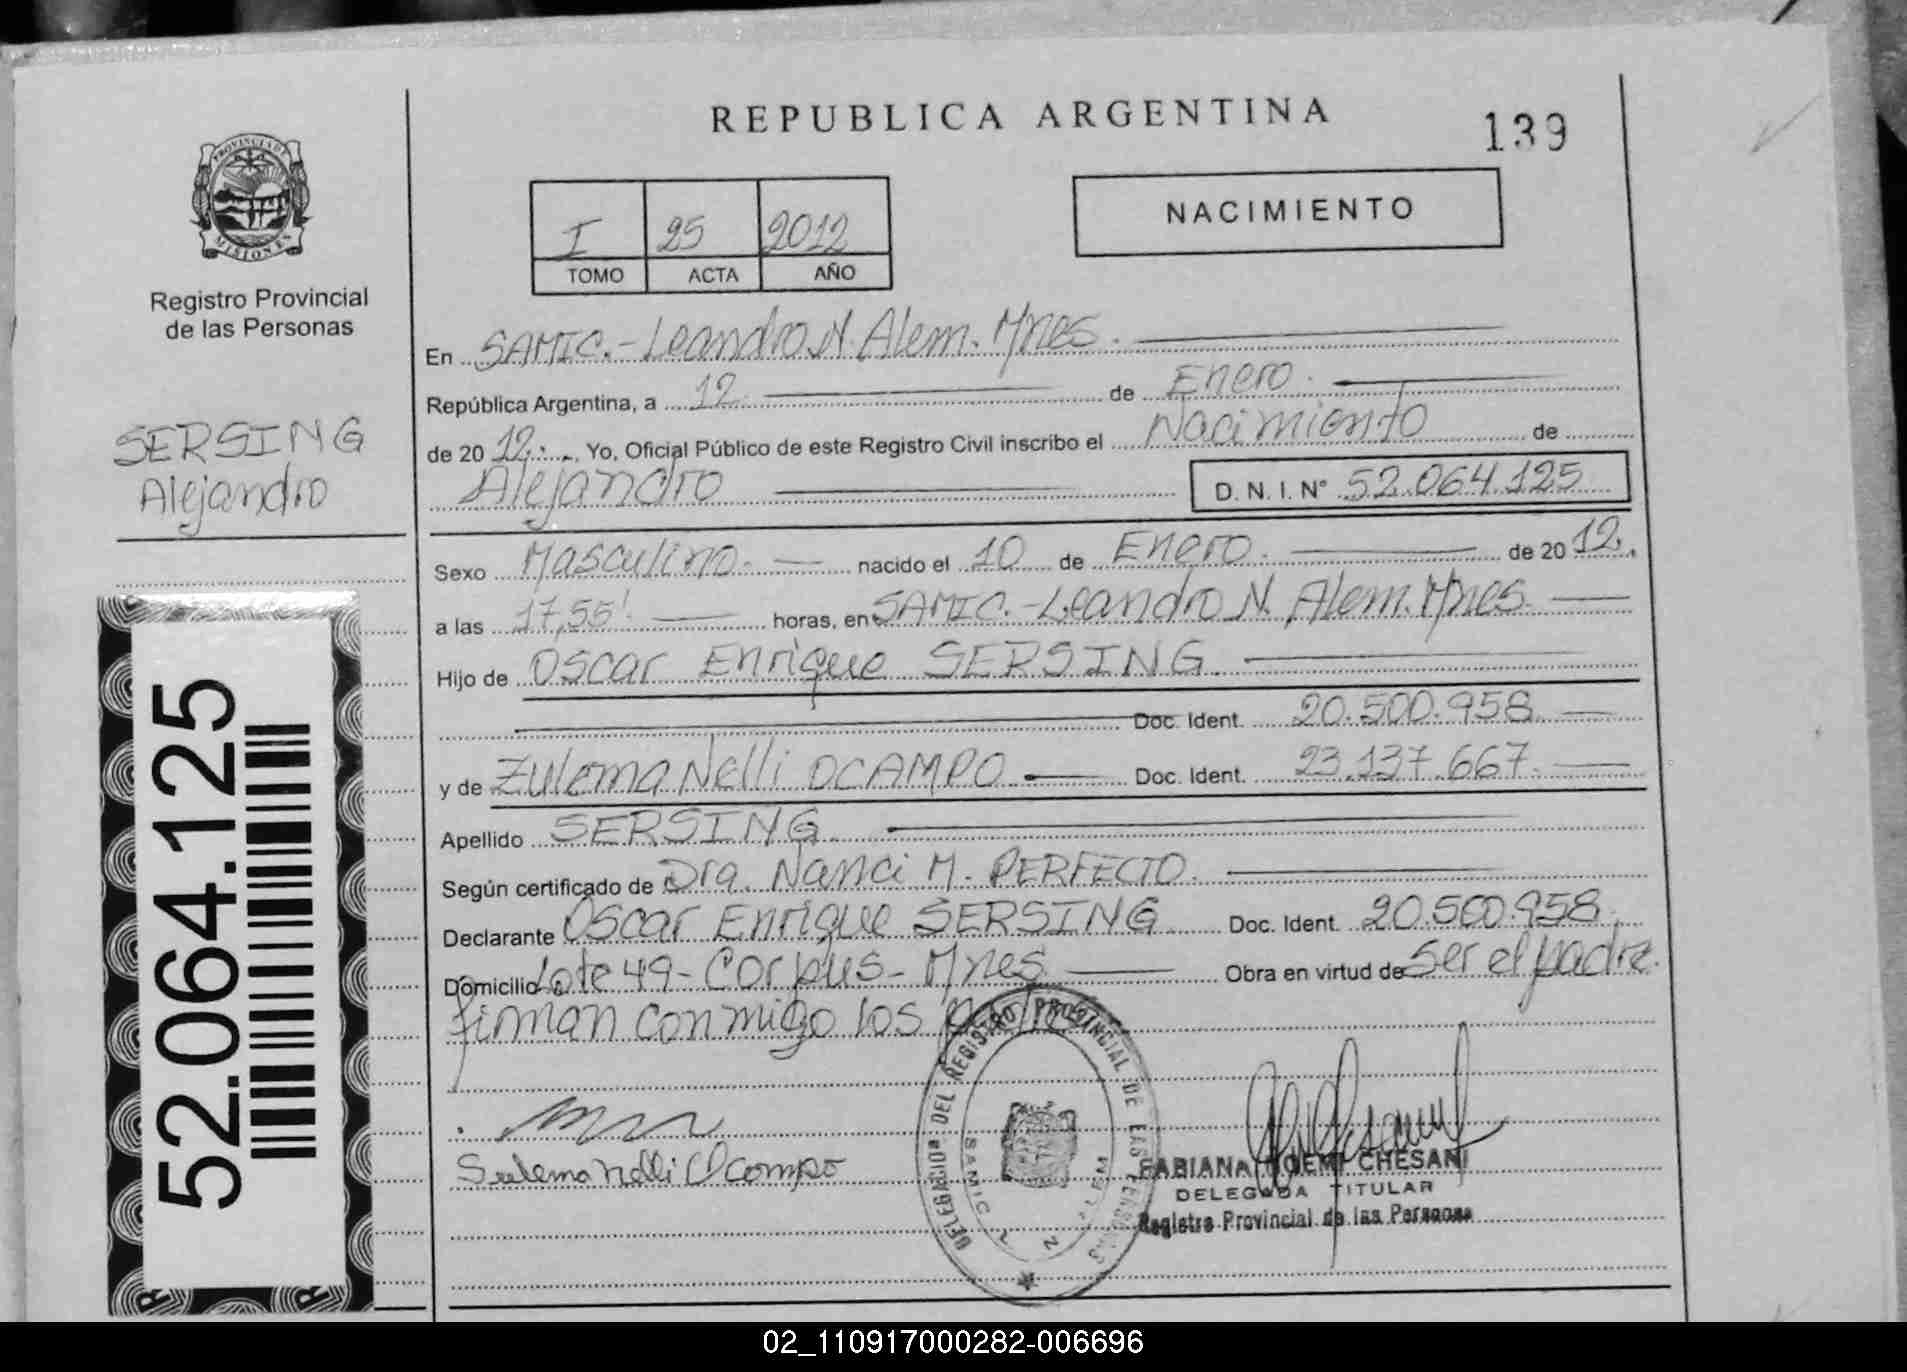 REPUBLICA ARGENTINA
139
PROVINCIA DE
MISIONES
Registro Provincial
de las Personas
I 25 2012
TOMO ACTA AÑO
NACIMIENTO
SERSING
Alejandro
En SAMIC.- Leandro N. Alem. Mnes.
República Argentina, a 12 de Enero.
de 20 12. Yo, Oficial Público de este Registro Civil inscribo el Nacimiento de
Alejandro D. N. I. N° 52.064.125
Sexo Masculino. nacido el 10 de Enero. de 20 12.
a las 17,55'. horas, en SAMIC.- Leandro N. Alem. Mnes.
Hijo de Oscar Enrique SERSING.
Doc. Ident. 20.500.958
y de Zulema Nelli OCAMPO Doc. Ident. 23.137.667.
Apellido SERSING.
Según certificado de Dra. Nanci M. PERFECTO.
Declarante Oscar Enrique SERSING Doc. Ident. 20.500.958
Domicilio Lote 49- Corpus- Mnes Obra en virtud de Ser el padre.
firman conmigo los padres
Sulema nelli Ocampo
DELEGACION DEL REGISTRO PROVINCIAL DE LAS PERSONAS
SAMIC
FABIANA NOEMI CHESANI
DELEGADA TITULAR
Registro Provincial de las Personas
52.064.125
02_110917000282-006696